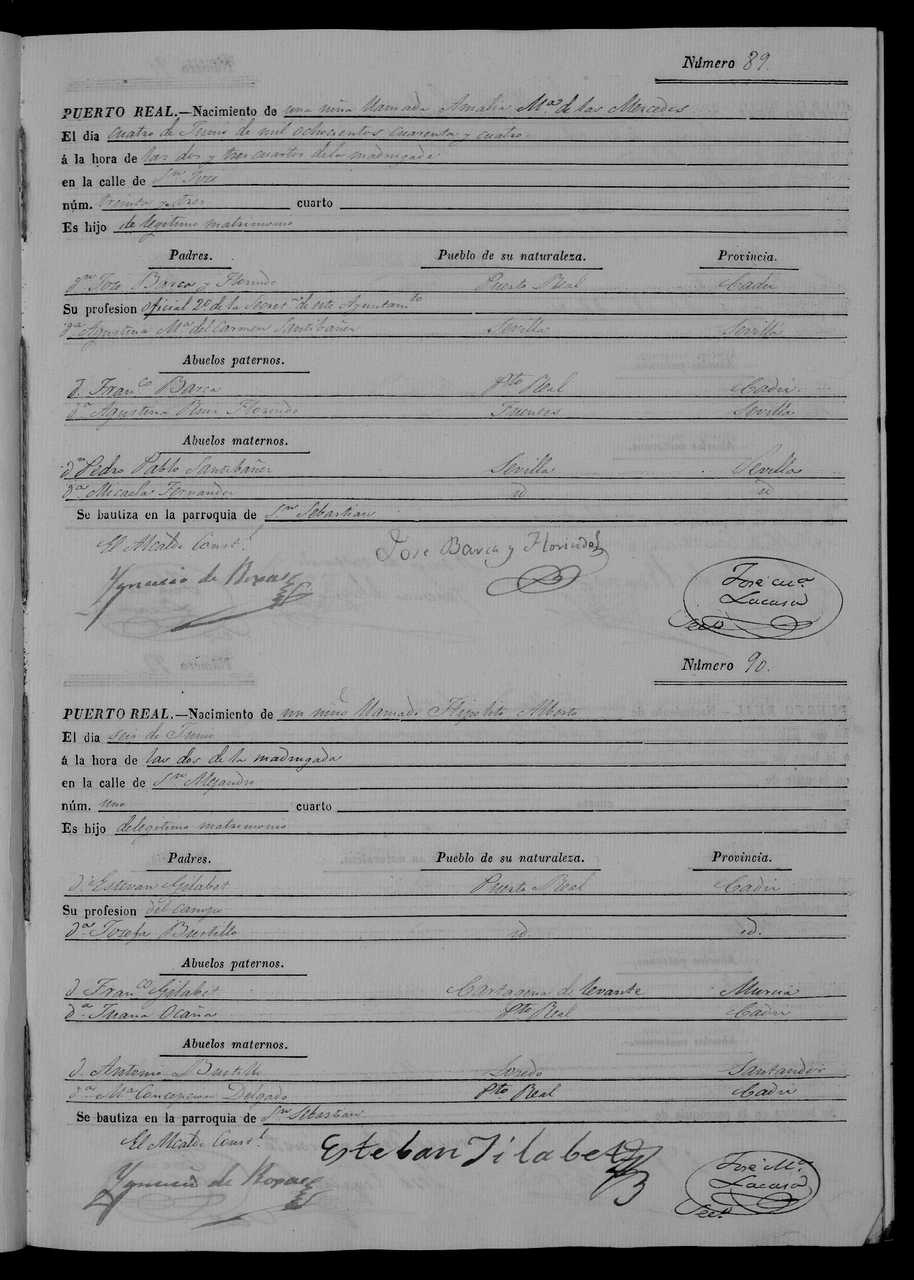 Número 89.
PUERTO REAL.—Nacimiento de una niña llamada Amalia Mª de las Mercedes
El dia cuatro de Junio de mil ochocientos cuarenta y cuatro.
á la hora de las dos y tres cuartos de la madrugada
en la calle de Sn José
núm. treinta y tres cuarto
Es hijo de legitimo matrimonio
Padres. Pueblo de su naturaleza. Provincia.
Dn José Barca y Florindo Puerto Real Cadiz
Su profesion oficial 2º de la Secretª de este Ayuntamto
Dª Agustina Mª del Carmen Santibañez Sevilla Sevilla
Abuelos paternos.
D. Franco Barca Pto Real Cadiz.
Dª Agustina Florindo Fuentes Sevilla
Abuelos maternos.
Dn Pedro Pablo Santibañez Sevilla Sevilla
Dª Micaela Fernandez id id
Se bautiza en la parroquia de Sn Sebastian
El Alcalde Constl
José Barca y Florindo
Ygnacio de
José Mª
Lacasa
Seco
Número 90.
PUERTO REAL.—Nacimiento de un niño llamado Hipolito Alberto
El dia seis de Junio
á la hora de las dos de la madrugada
en la calle de Sn Alejandro
núm. uno cuarto
Es hijo de legitimo matrimonio
Padres. Pueblo de su naturaleza. Provincia.
D. Estevan Gilabet Puerto Real Cadiz
Su profesion del campo
Dª Josefa Bustillo id. id.
Abuelos paternos.
D. Franco Gilabet Cartagena de Levante Murcia
Dª Juana Ocaña Pto Real Cadiz
Abuelos maternos.
D. Antonio Bustillo Loredo Santander
Dª Mª Concepcion Delgado Pto Real Cadiz
Se bautiza en la parroquia de Sn Sebastian
El Alcalde Constl
Esteban Jilabet
Ygnacio de
José Mª
Lacasa
Seco